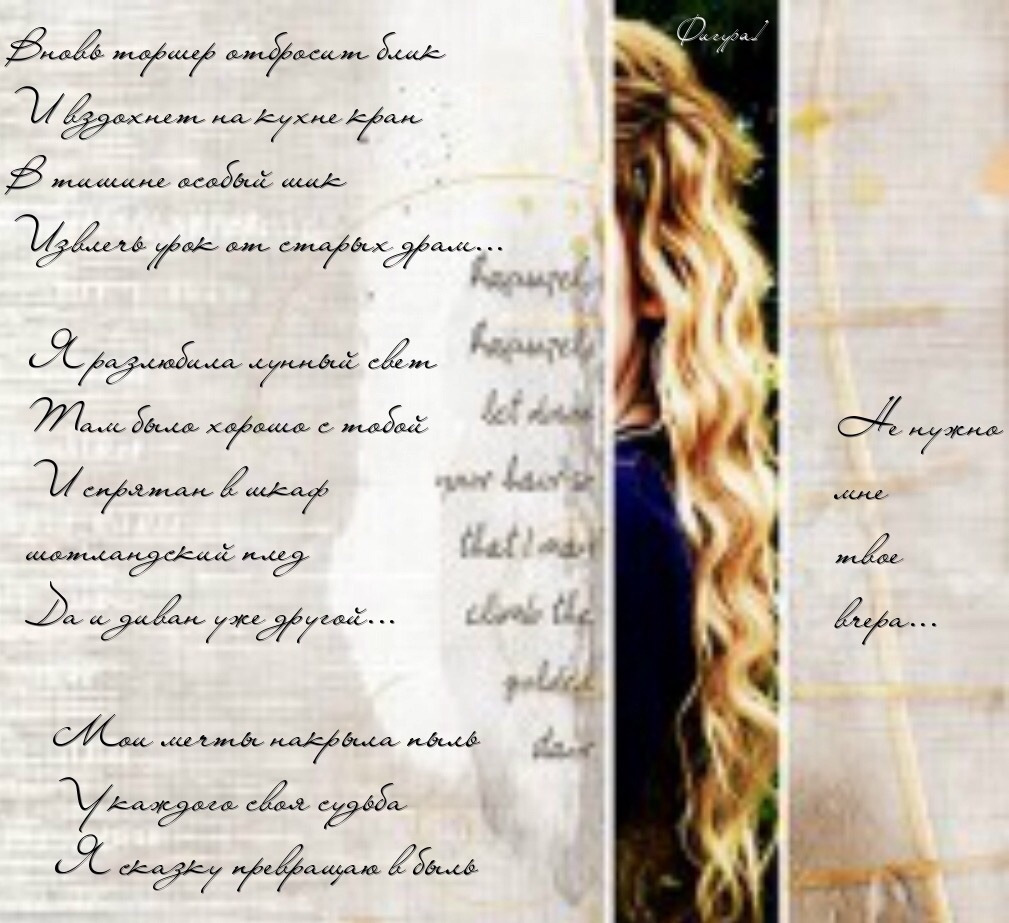 Фигура!
Вновь торшер отбросит блик
И вздохнет на кухне кран
В тишине особый шик
Извлечь урок от старых драм...
Я разлюбила лунный свет
Там было хорошо с тобой
И спрятан в шкаф
шотландский плед
Да и диван уже другой...
Мои мечты накрыла пыль
У каждого своя судьба
Я сказку превращаю в быль
Не нужно
мне
твое
вчера...
let down
your hair so
that I may
climb the
golden
stair